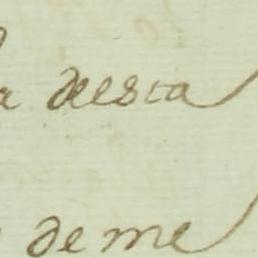 a deesta
de me